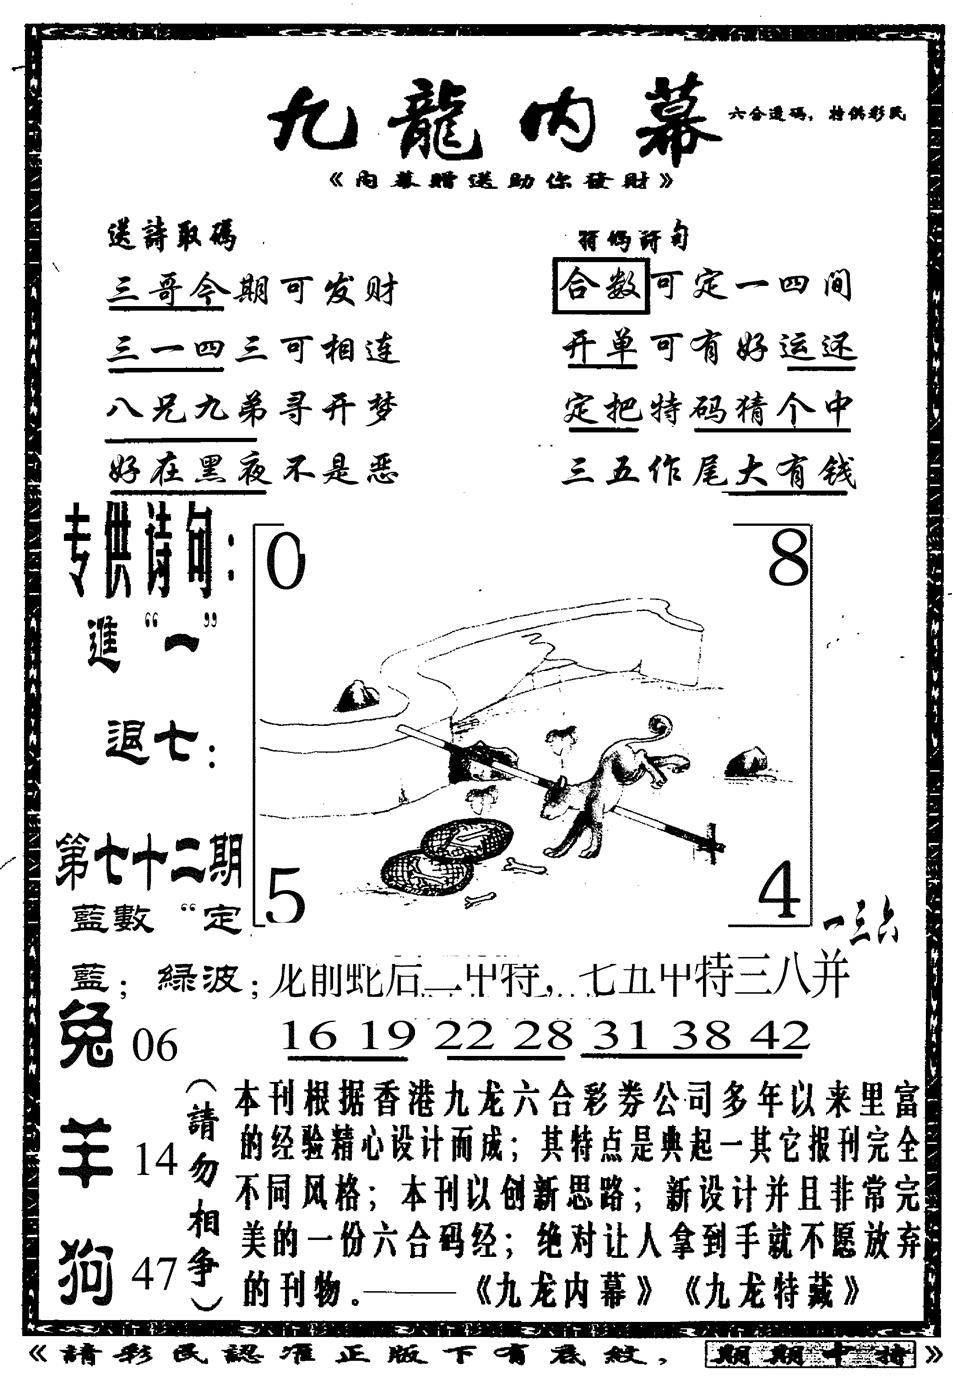 九龍内幕
六合透码，特供彩民
《内幕贈送助你發財》
送詩取碼
三哥今期可发财
三一四三可相连
八兄九弟寻开梦
好在黑夜不是恶
特码诗句
合数可定一四间
开单可有好运还
定把特码猜个中
三五作尾大有钱
专供诗句：
進“一”
退七：
第七十二期
藍數“定
藍；綠波；
0
8
5
4
一三六
龙前蛇后二中特，七五中特三八并
16 19 22 28 31 38 42
兔 06
羊 14
狗 47
（請勿相争）
本刊根据香港九龙六合彩券公司多年以来里富
的经验精心设计而成；其特点是典起一其它报刊完全
不同风格；本刊以创新思路；新设计并且非常完
美的一份六合码经；绝对让人拿到手就不愿放弃
的刊物。——《九龙内幕》《九龙特藏》
《請彩民認准正版下有底紋，期期中特》